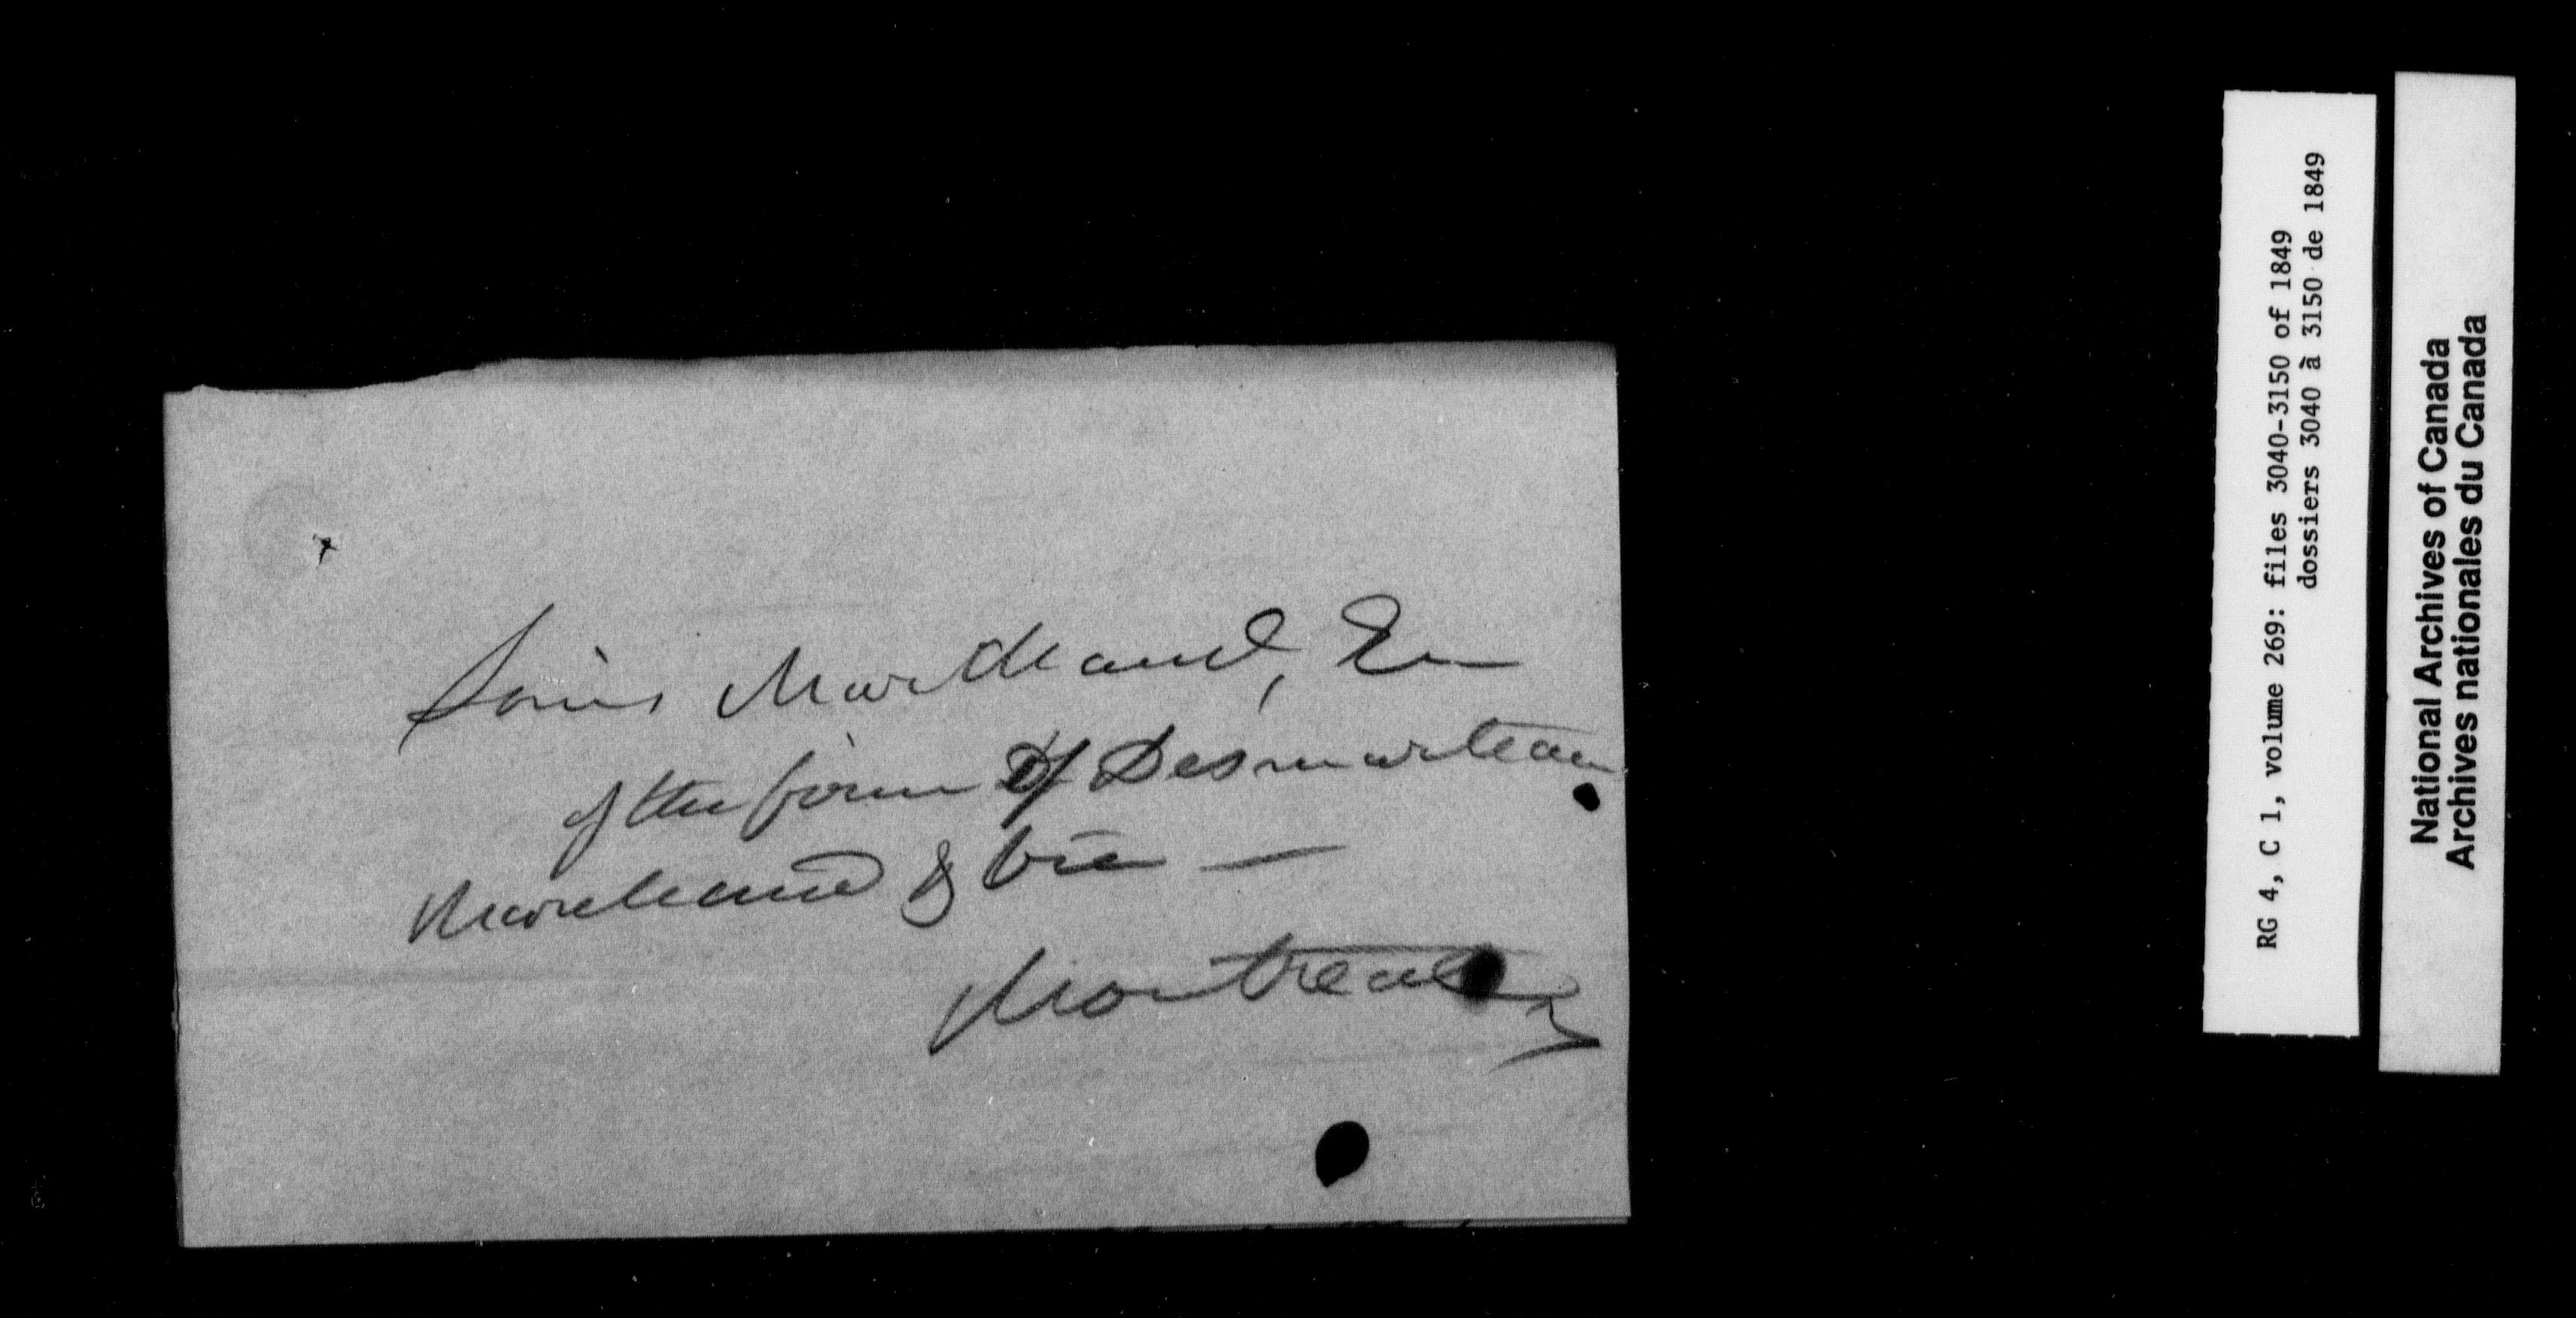 Louis Marchand, Er
of the firm Of Desmarteau
Marchand & Cie —
Montreal
RG 4, C 1, volume 269: files 3040-3150 of 1849
dossiers 3040 à 3150 de 1849
National Archives of Canada
Archives nationales du Canada